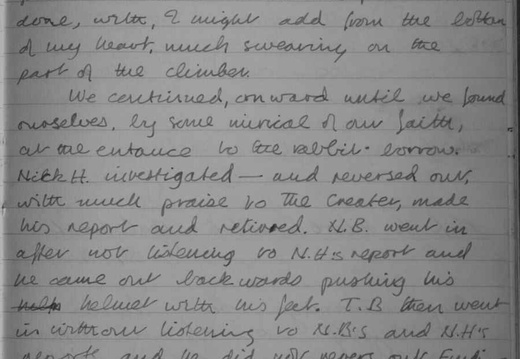 done, with, I might add from the bottom
of my heart, much swearing on the
part of the climber.
We continued, onward until we found
ourselves, by some mirical of our faith,
at the entance to the rabbit borrow.
Nick H. investigated — and reversed out,
with much praise to the Creater, made
his report and retired. N.B. went in
after not listening to N.H's report and
he came out backwards pushing his
helmet with his feet. T.B then went
in without listening to N.B's and N.H's
reports and he did not